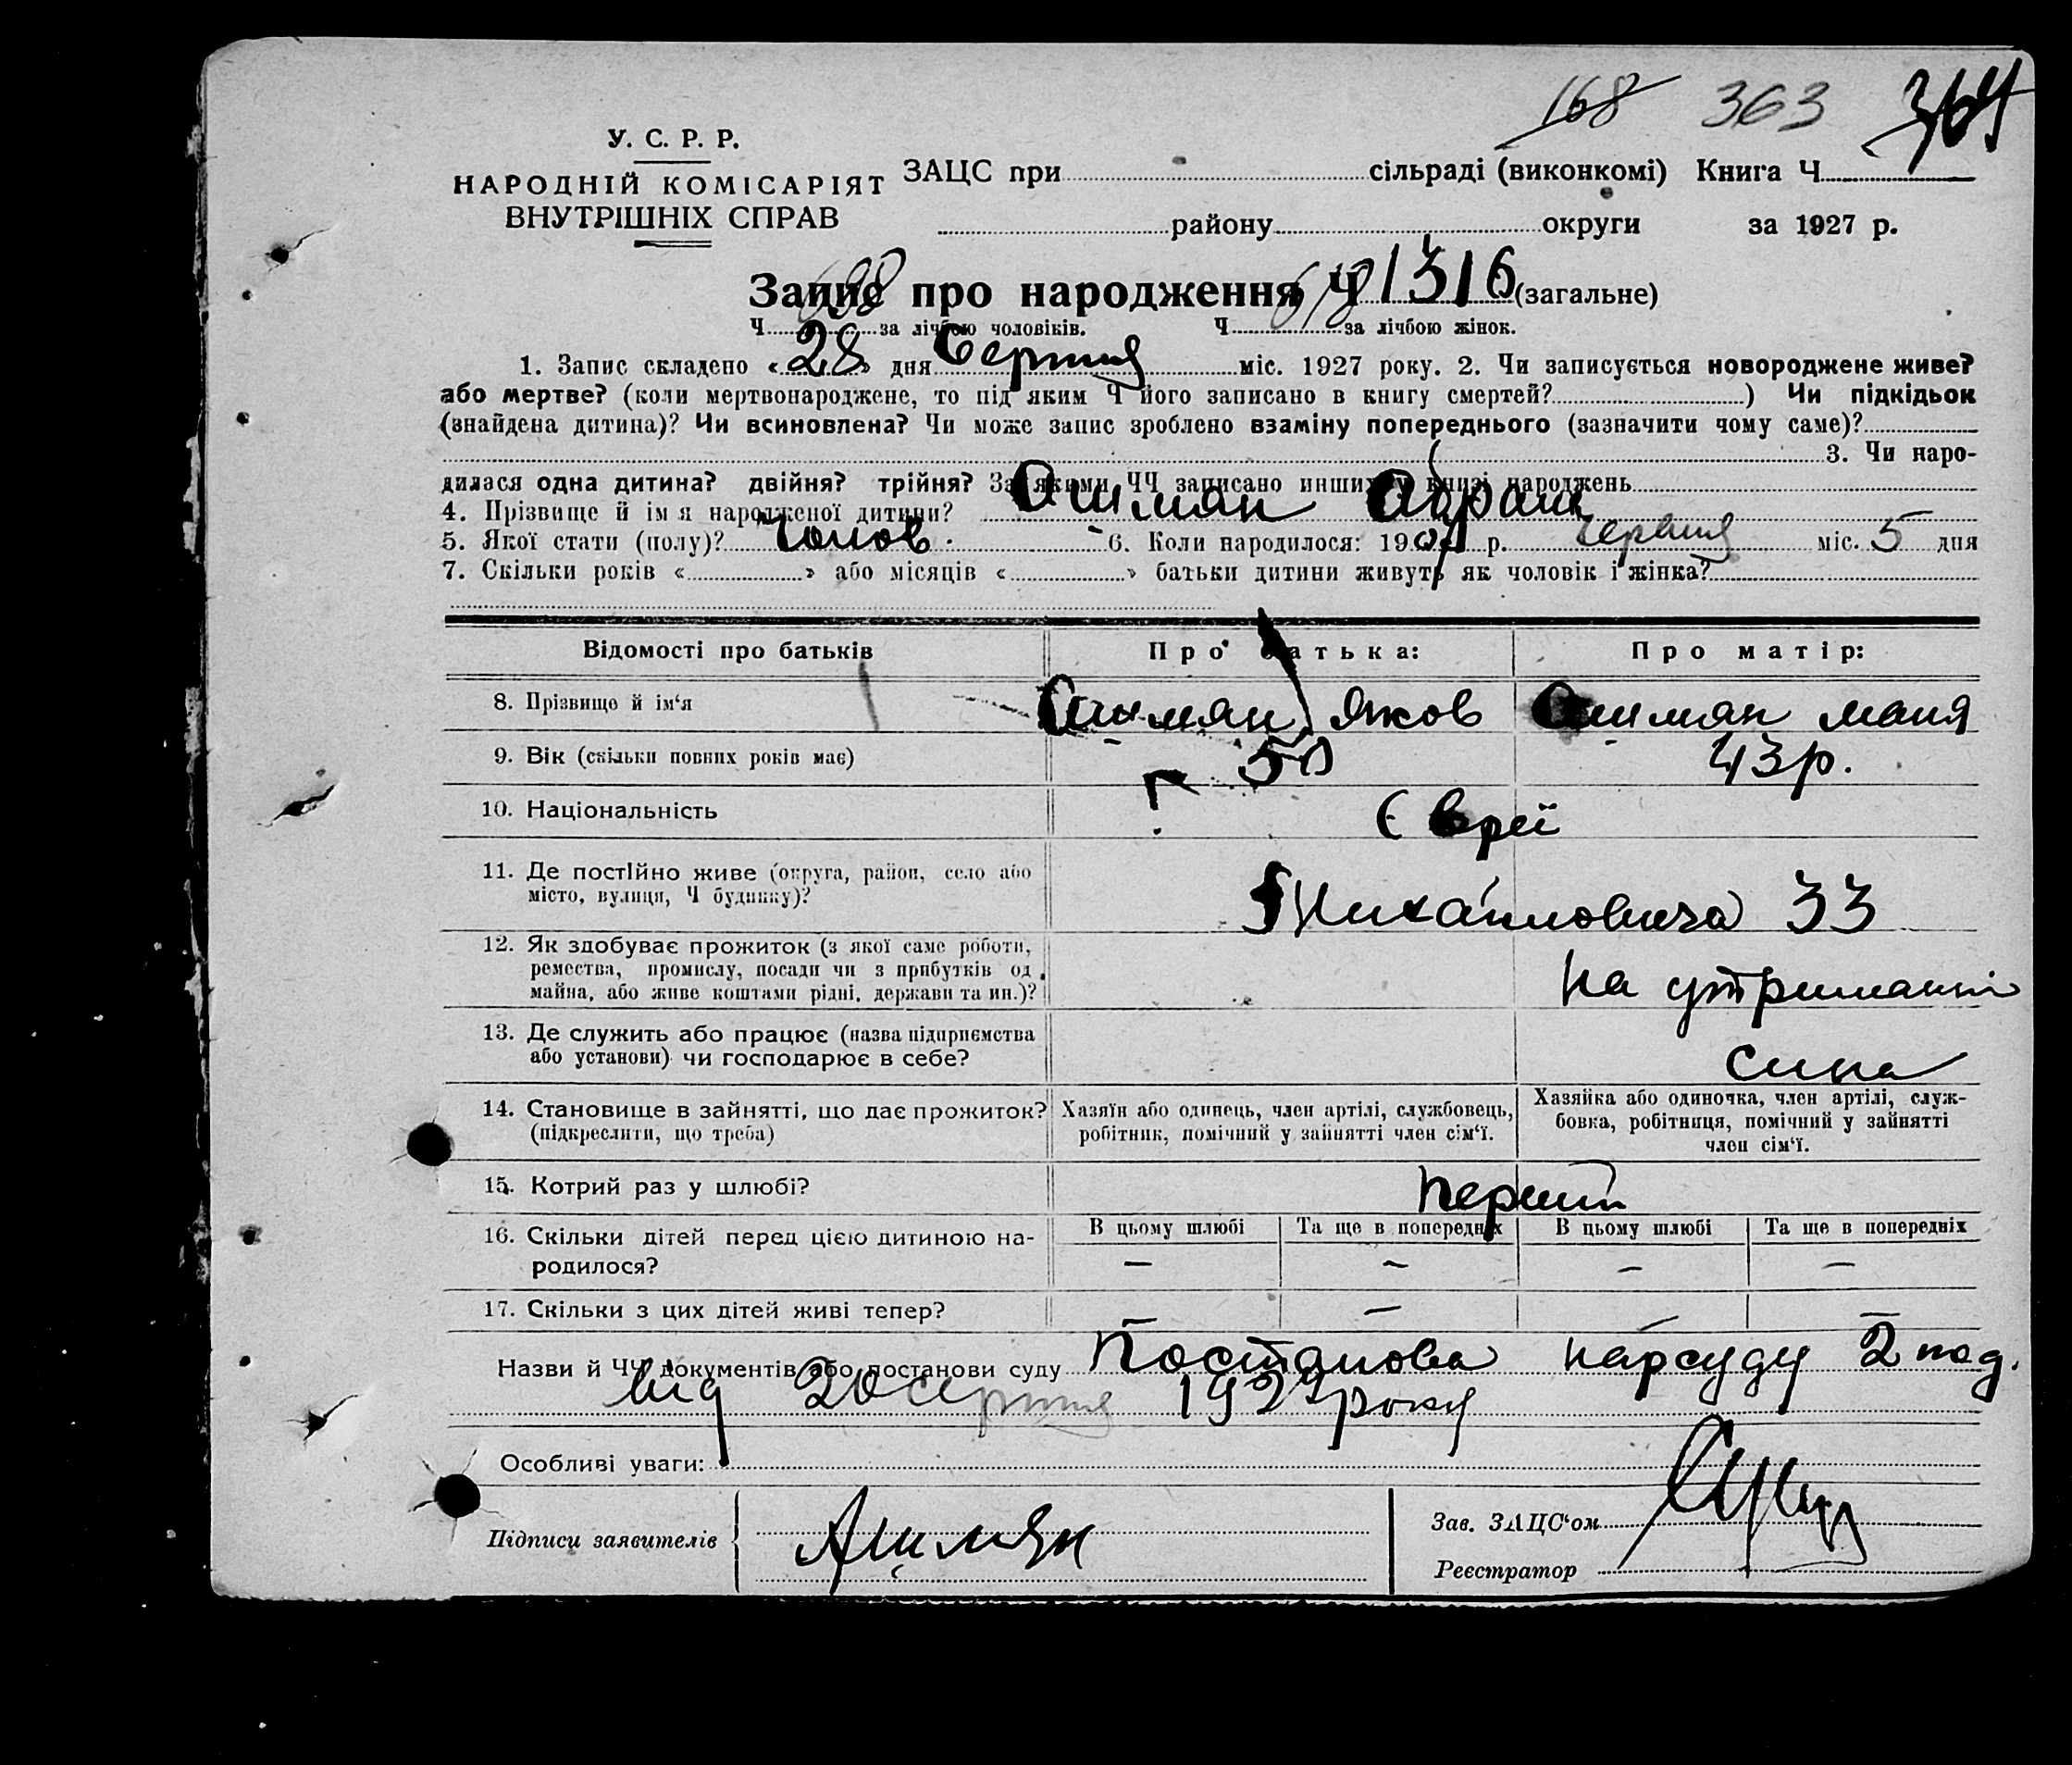 168 363 364
У. С. Р. Р.
НАРОДНІЙ КОМІСАРІЯТ
ВНУТРІШНІХ СПРАВ
ЗАЦС при сільраді (виконкомі) Книга Ч
району округи за 1927 р.
Запис про народження Ч 1316 (загальне)
Ч 698 за лічбою чоловіків. Ч 618 за лічбою жінок.
1. Запис складено « 28 » дня Серпня міс. 1927 року. 2. Чи записується новороджене живе?
або мертве? (коли мертвонароджене, то під яким Ч його записано в книгу смертей? ) Чи підкідьок
(знайдена дитина)? Чи всиновлена? Чи може запис зроблено взаміну попереднього (зазначити чому саме)?
3. Чи наро-
дилася одна дитина? двійня? трійня? За якими ЧЧ записано инших у книзі народжень
4. Прізвище й ім'я народженої дитини? Ашман Абрам
5. Якої стати (полу)? Чолов. 6. Коли народилося: 19 р. червня міс. 5 дня
7. Скільки років « » або місяців « » батьки дитини живуть як чоловік і жінка?
Відомості про батьків Про батька: Про матір:
8. Прізвище й ім'я Ашман Яков Ашман Маня
9. Вік (скільки повних років має) 50 43 р.
10. Національність Євреї
11. Де постійно живе (округа, район, село або
місто, вулиця, Ч будинку)? 33
12. Як здобуває прожиток (з якої саме роботи,
ремества, промислу, посади чи з прибутків од
майна, або живе коштами рідні, держави та ин.)? на утриманні
13. Де служить або працює (назва підприємства
або установи) чи господарює в себе? сина
14. Становище в зайнятті, що дає прожиток?
(підкреслити, що треба)
Хазяїн або одинець, член артілі, службовець,
робітник, помічний у зайнятті член сім'ї.
Хазяйка або одиночка, член артілі, служ-
бовка, робітниця, помічний у зайнятті
член сім'ї.
15. Котрий раз у шлюбі? перший
16. Скільки дітей перед цією дитиною на-
родилося?
В цьому шлюбі Та ще в попередніх В цьому шлюбі Та ще в попередніх
— — — —
17. Скільки з цих дітей живі тепер? — — — —
Назви й ЧЧ документів або постанови суду Постанова нарсуду 2
від 20 серпня 1927 року
Особливі уваги:
Підписи заявителів Ашман
Зав. ЗАЦС'ом
Реєстратор